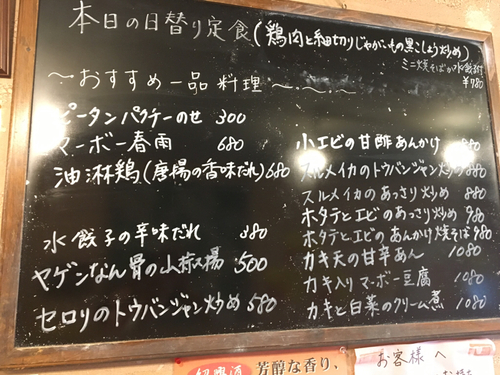 本日の日替り定食(鶏肉と細切りじゃがいもの黒こしょう炒め)
ミニ焼そばか水餃子付
¥780
～おすすめ一品料理～
ピータンパクチーのせ 300
マーボー春雨 680
油淋鶏(唐揚の香味だれ) 680
水餃子の辛味だれ 380
ヤゲンなん骨の山椒揚 500
セロリのトウバンジャン炒め 580
小エビの甘酢あんかけ 880
スルメイカのトウバンジャン炒め 880
スルメイカのあっさり炒め 880
ホタテとエビのあっさり炒め 980
ホタテとエビのあんかけ焼そば 980
カキ天の甘辛あん 1080
カキ入りマーボー豆腐 1080
カキと白菜のクリーム煮 1080
紹興酒
芳醇な香り、
お客様へ